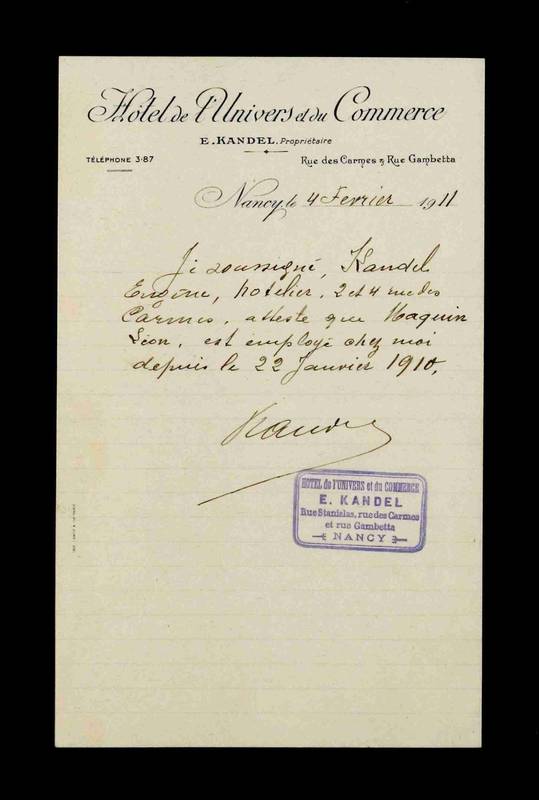 Hôtel de l'Univers et du Commerce
E. KANDEL. Propriétaire
TÉLÉPHONE 3-87
Rue des Carmes & Rue Gambetta
Nancy, le 4 Fevrier 1911
Je soussigné, Kandel
Eugène, hotelier, 2 et 4 rue des
Carmes, atteste que Haquin
Léon, est employé chez moi
depuis le 22 Janvier 1910,
Kandel
HÔTEL de l'UNIVERS et du COMMERCE
E. KANDEL
Rue Stanislas, rue des Carmes
et rue Gambetta
NANCY